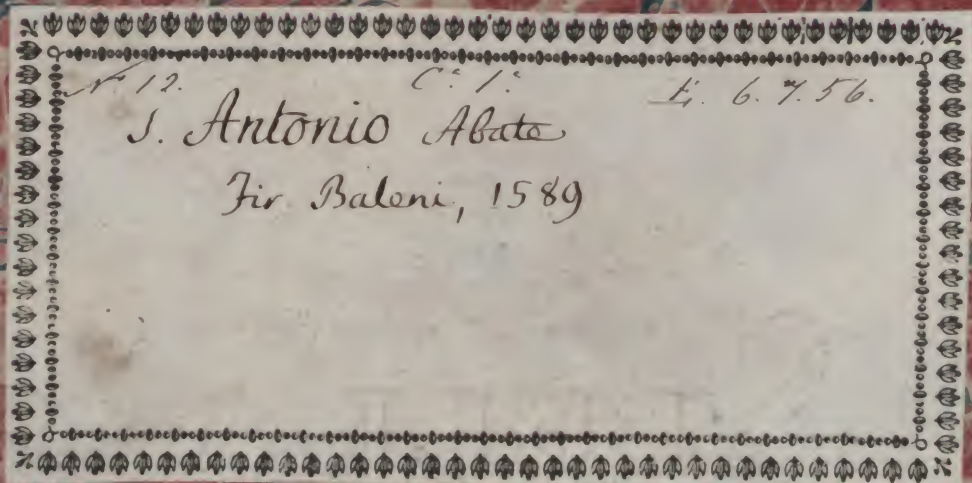 Nº 12. Cª. 1ª. E. 6. 7. 56.
S. Antonio Abate
Fir Baleni, 1589